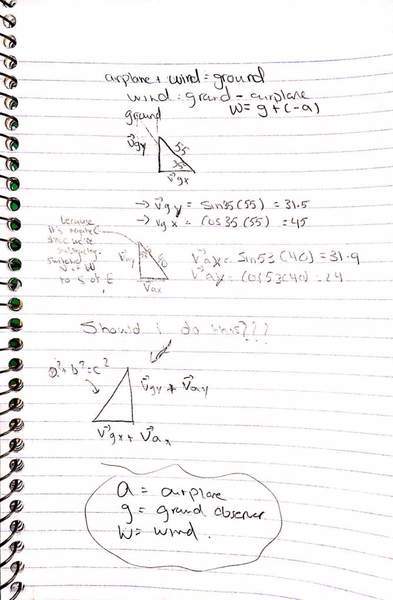 airplane + wind = ground
wind = ground - airplane
w = g + (-a)
ground
v⃗gy
55
35
v⃗gx
→ v⃗gy = sin35(55) = 31.5
→ vgx = cos35(55) = 45
because
it's negative
since we're
subtracting
switched
to S of E
v⃗ay
v⃗ax
v⃗ax = sin53(40) = 31.9
v⃗ay = cos53(40) = 24
Should i do this???
a² + b² = c²
v⃗gy + v⃗ay
v⃗gx + v⃗ax
a = airplane
g = ground observer
w = wind.